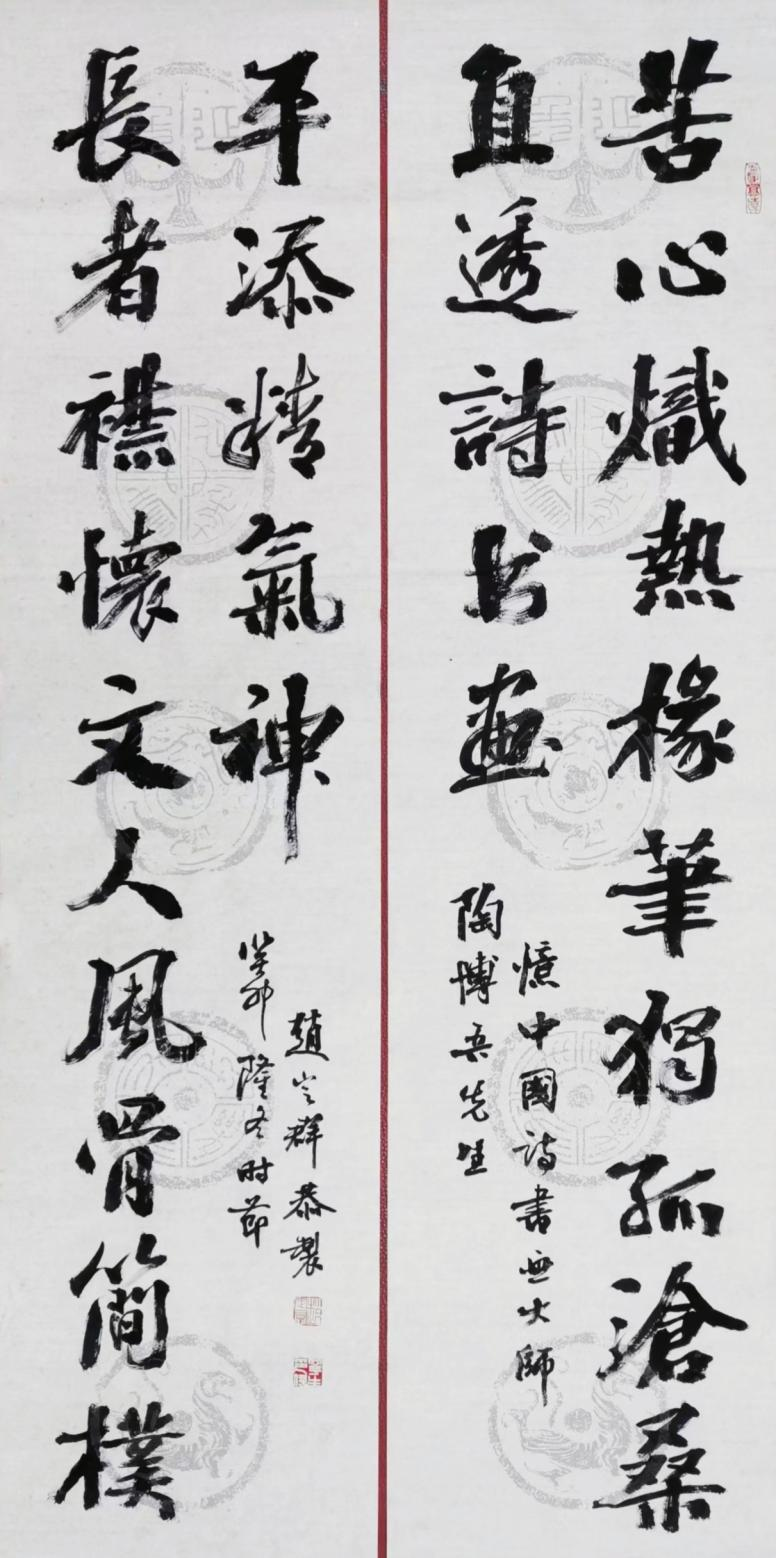 苦心熾熱椽筆獨孤滄桑
直透詩书畫
憶中國诗書画大師
陶博吾先生
長者襟懷文人風骨簡樸
平添精氣神
趙群恭製
癸卯隆冬时節